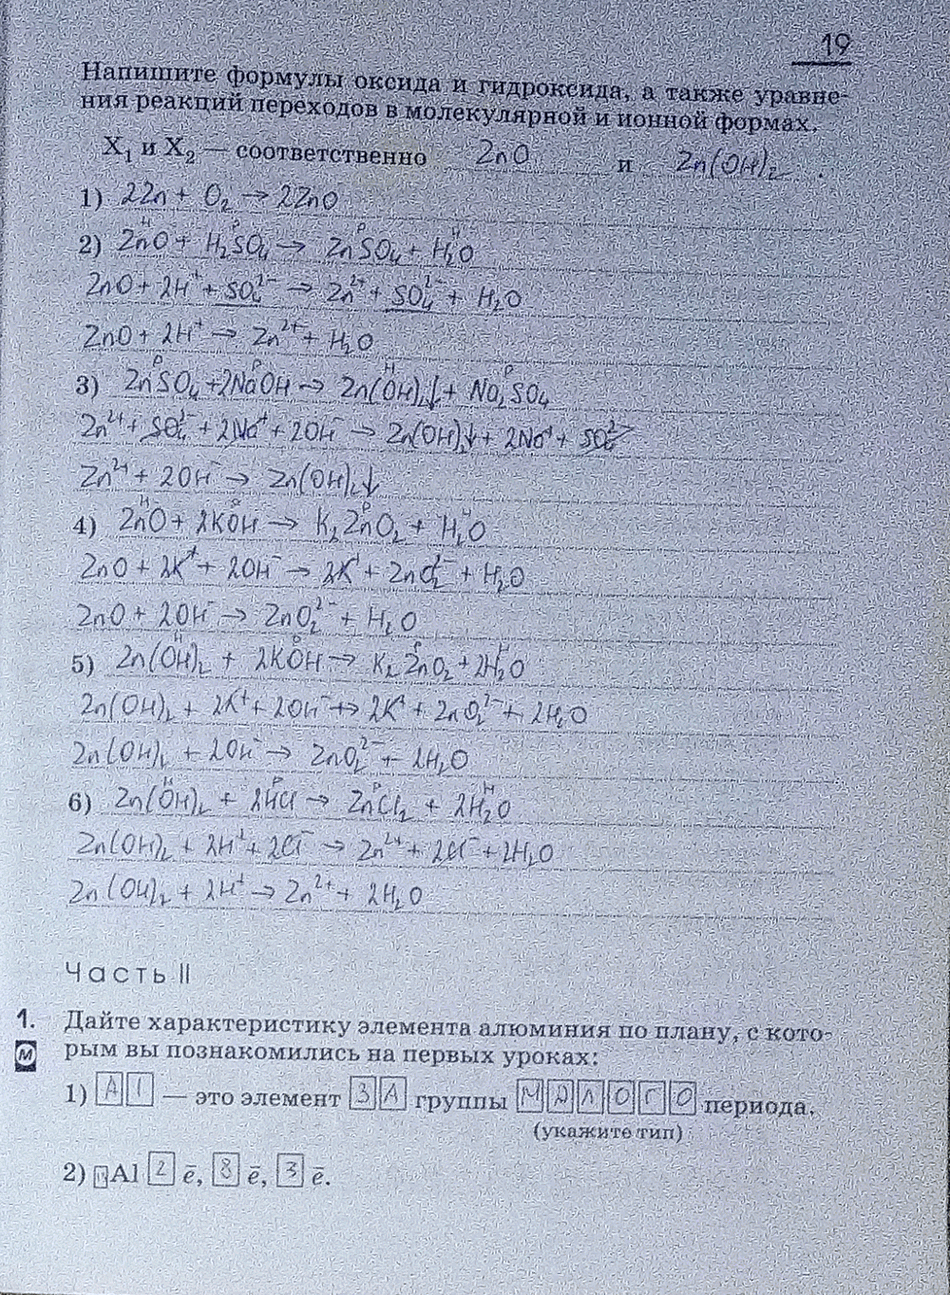 19
Напишите формулы оксида и гидроксида, а также уравне-
ния реакций переходов в молекулярной и ионной формах.
X₁ и X₂ — соответственно ZnO и Zn(OH)₂.
1) 2Zn + O₂ → 2ZnO
н р р н
2) ZnO + H₂SO₄ → ZnSO₄ + H₂O
ZnO + 2H⁺ + SO₄²⁻ → Zn²⁺ + SO₄²⁻ + H₂O
ZnO + 2H⁺ → Zn²⁺ + H₂O
р р н р
3) ZnSO₄ + 2NaOH → Zn(OH)₂↓ + Na₂SO₄
Zn²⁺ + SO₄²⁻ + 2Na⁺ + 2OH⁻ → Zn(OH)₂↓ + 2Na⁺ + SO₄²⁻
Zn²⁺ + 2OH⁻ → Zn(OH)₂↓
н р р н
4) ZnO + 2KOH → K₂ZnO₂ + H₂O
ZnO + 2K⁺ + 2OH⁻ → 2K⁺ + ZnO₂²⁻ + H₂O
ZnO + 2OH⁻ → ZnO₂²⁻ + H₂O
н р р н
5) Zn(OH)₂ + 2KOH → K₂ZnO₂ + 2H₂O
Zn(OH)₂ + 2K⁺ + 2OH⁻ → 2K⁺ + ZnO₂²⁻ + 2H₂O
Zn(OH)₂ + 2OH⁻ → ZnO₂²⁻ + 2H₂O
н р р н
6) Zn(OH)₂ + 2HCl → ZnCl₂ + 2H₂O
Zn(OH)₂ + 2H⁺ + 2Cl⁻ → Zn²⁺ + 2Cl⁻ + 2H₂O
Zn(OH)₂ + 2H⁺ → Zn²⁺ + 2H₂O
Часть II
1. Дайте характеристику элемента алюминия по плану, с кото-
М рым вы познакомились на первых уроках:
1) Al — это элемент 3А группы МАЛОГО периода.
(укажите тип)
2) Al 2 ē, 8 ē, 3 ē.